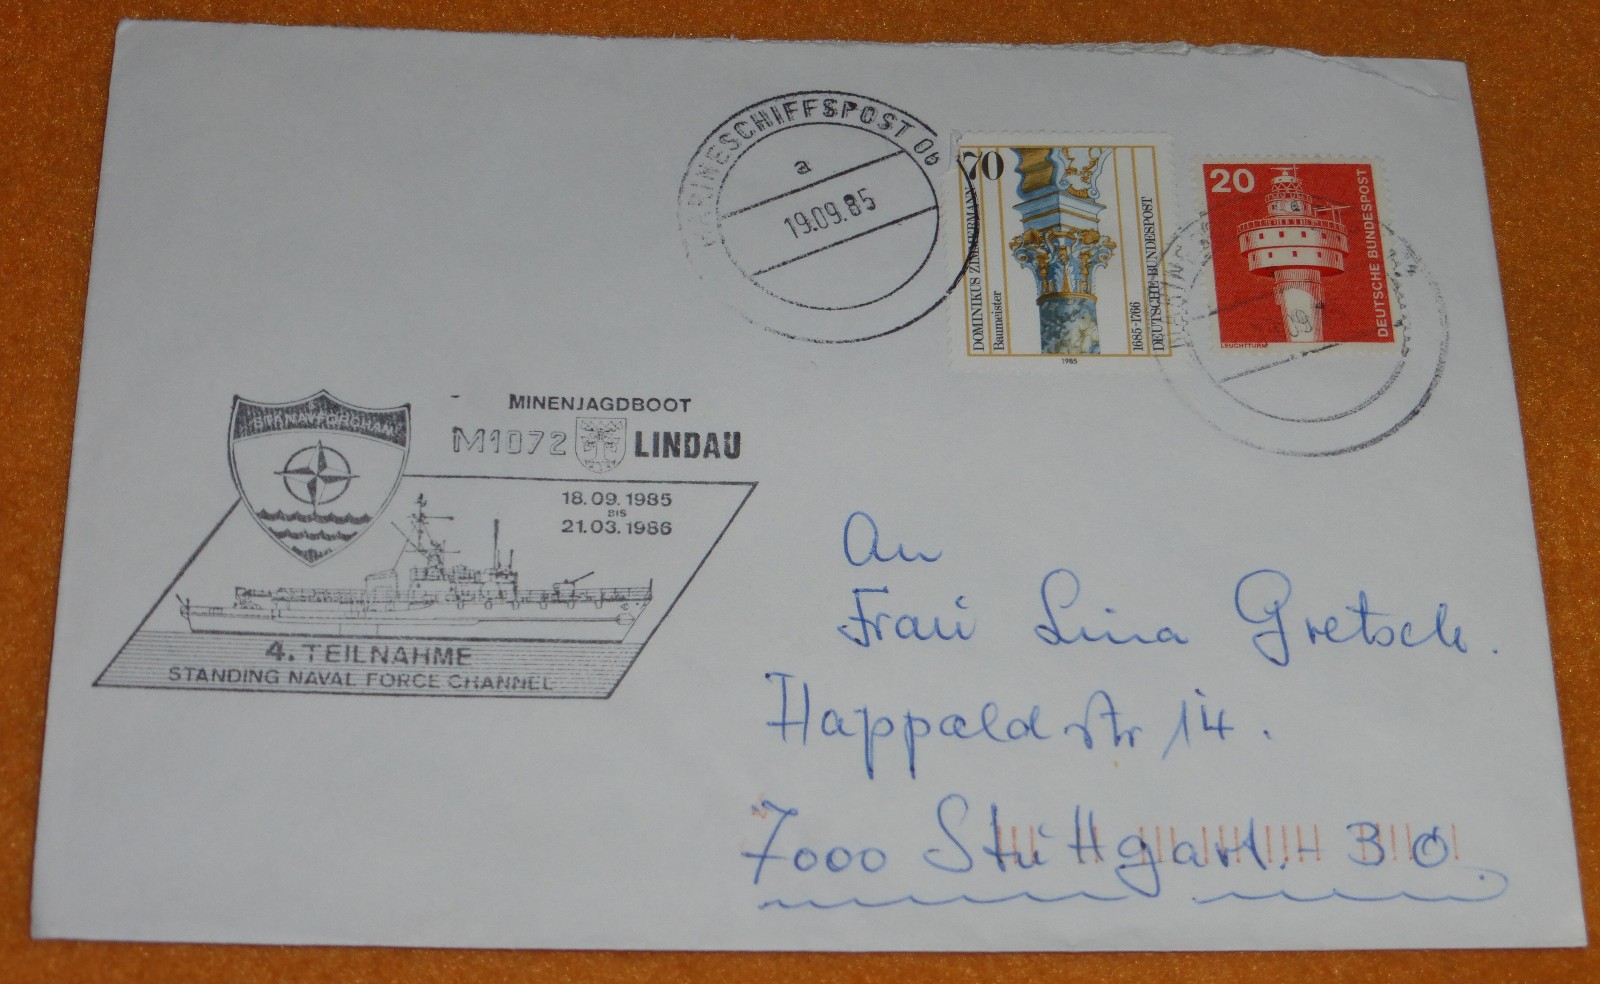 MARINESCHIFFSPOST 06
a
19.09.85
70
DOMINIKUS ZIMMERMANN
Baumeister
1685-1766
DEUTSCHE BUNDESPOST
1985
20
DEUTSCHE BUNDESPOST
LEUCHTTURM
a
09
STANAVFORCHAN
MINENJAGDBOOT
M1072 LINDAU
18.09.1985
BIS
21.03.1986
4. TEILNAHME
STANDING NAVAL FORCE CHANNEL
An
Frau Lina Gretsch.
Happoldstr 14.
7000 Stuttgart. - 30.